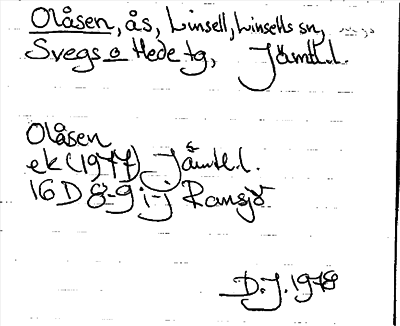 Olåsen, ås, Linsell, Linsells sn,
Svegs o Hede tg, Jämtl.l.
Olåsen
ek (1977) Jämtl.l.
16D 8-9 i-j Ransjö
D.J. 1978